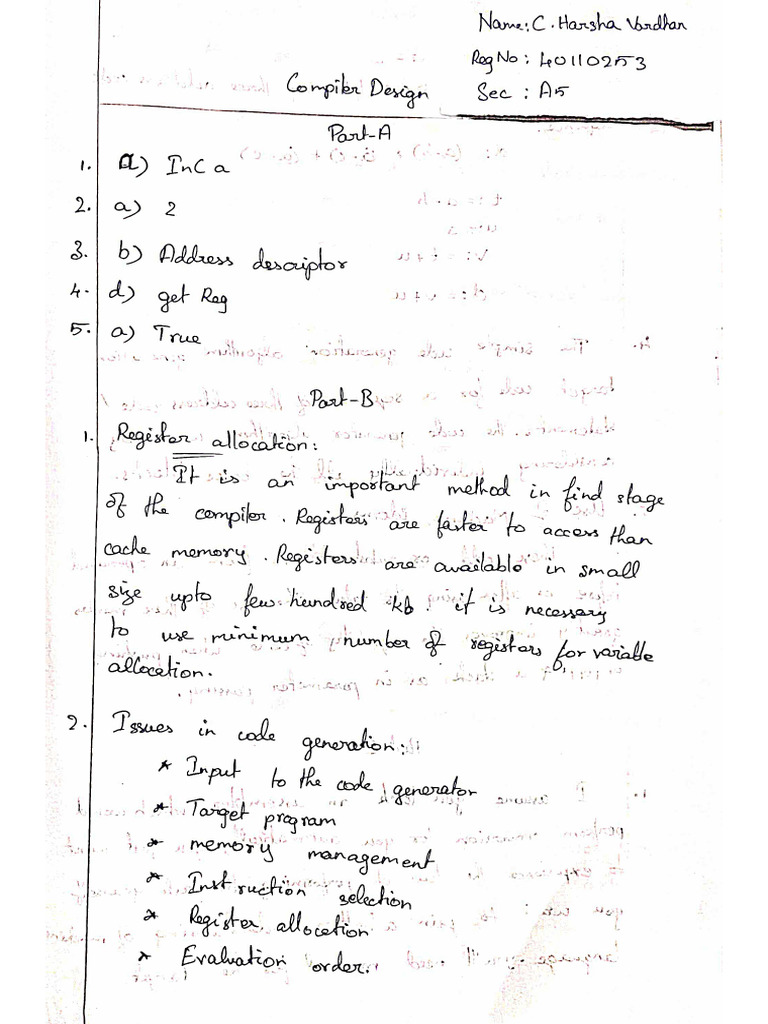 Name: C. Harsha Vardhan
Reg No : 40110253
Compiler Design
Sec : A5
Part-A
1. a) InC a
2. a) 2
3. b) Address descriptor
4. d) get Reg
5. a) True
Part-B
1. Register allocation:
It is an important method in find stage
of the compiler. Registers are faster to access than
cache memory. Registers are available in small
size upto few hundred kb. it is necessary
to use minimum number of registers for variable
allocation.
2. Issues in code generation:
* Input to the code generator
* Target program
* memory management
* Instruction selection
* Register allocation
* Evaluation order.